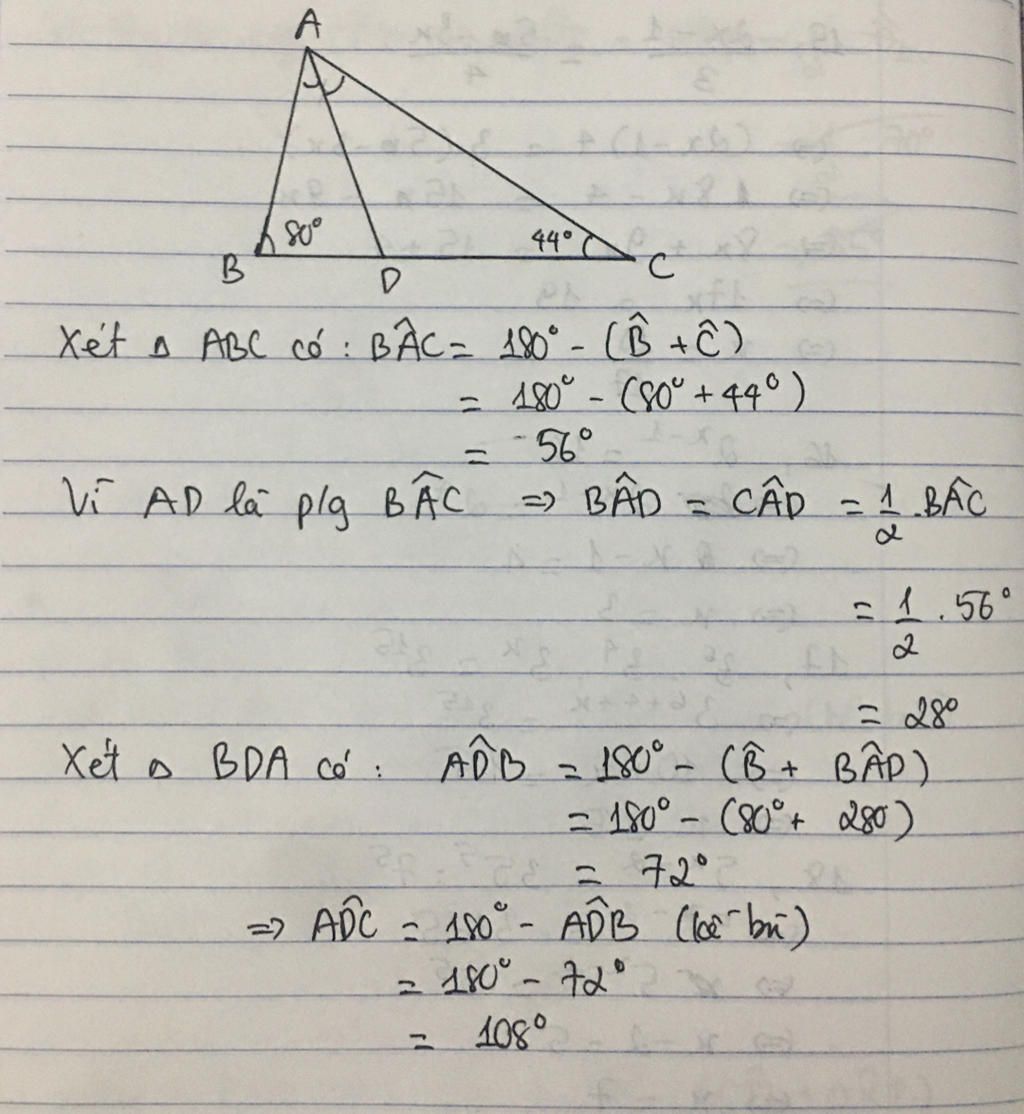 A
80°
44°
B
D
C
Xét △ ABC có: BÂC = 180° - (B̂ + Ĉ)
= 180° - (80° + 44°)
= 56°
Vì AD là p/g BÂC => BÂD = CÂD = 1/2 . BÂC
= 1/2 . 56°
= 28°
Xét △ BDA có: AD̂B = 180° - (B̂ + BÂD)
= 180° - (80° + 280)
= 72°
=> AD̂C = 180° - AD̂B (kề bù)
= 180° - 72°
= 108°